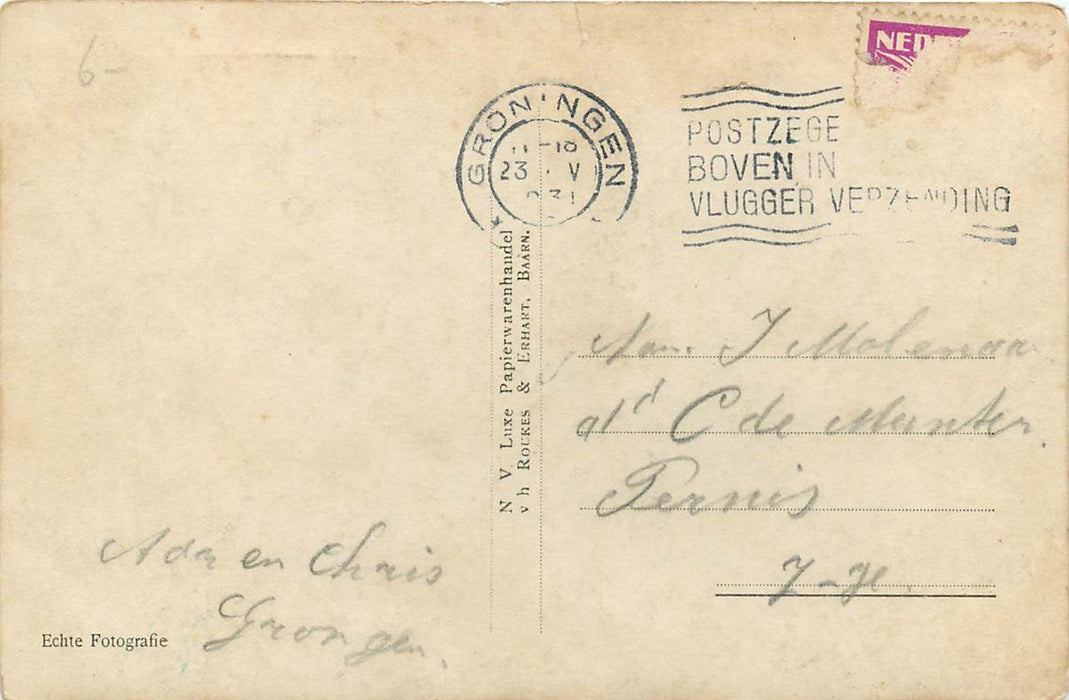 6-
NED
GRONINGEN
23 V
POSTZEGE
BOVEN IN
VLUGGER VERZENDING
N V Luxe Papierwarenhandel
v h ROUKES & ERHART, BAARN.
Aan. J Molenaar
a/d C de Munter.
Pernis
Z-H.
Ada en Chris
Grongen.
Echte Fotografie